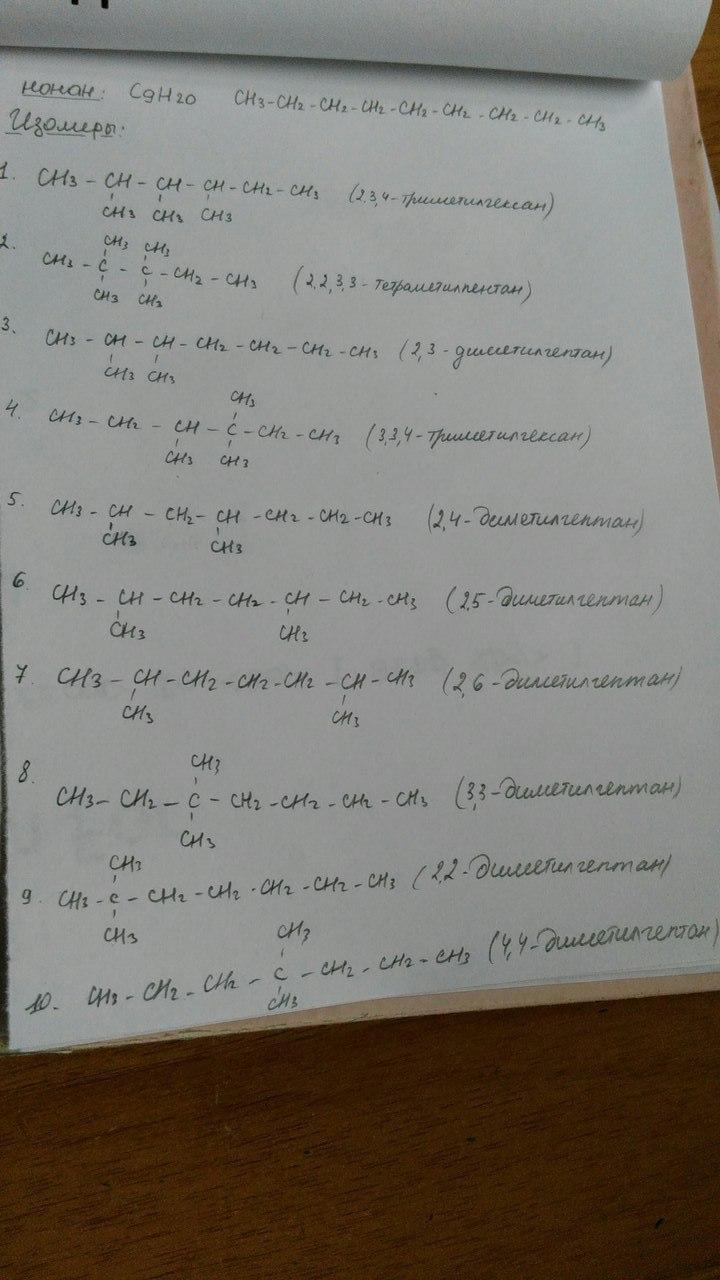 нонан: C9H20 CH3-CH2-CH2-CH2-CH2-CH2-CH2-CH2-CH3
Изомеры:
1. CH3 - CH - CH - CH - CH2 - CH3 (2,3,4-триметилгексан)
CH3 CH3 CH3
CH3 CH3
2. CH3 - C - C - CH2 - CH3 (2,2,3,3-тетраметилпентан)
CH3 CH3
3. CH3 - CH - CH - CH2 - CH2 - CH2 - CH3 (2,3-диметилгептан)
CH3 CH3
CH3
4. CH3 - CH2 - CH - C - CH2 - CH3 (3,3,4-триметилгексан)
CH3 CH3
5. CH3 - CH - CH2 - CH - CH2 - CH2 - CH3 (2,4-диметилгептан)
CH3 CH3
6. CH3 - CH - CH2 - CH2 - CH - CH2 - CH3 (2,5-диметилгептан)
CH3 CH3
7. CH3 - CH - CH2 - CH2 - CH2 - CH - CH3 (2,6-диметилгептан)
CH3 CH3
CH3
8. CH3 - CH2 - C - CH2 - CH2 - CH2 - CH3 (3,3-диметилгептан)
CH3
CH3
9. CH3 - C - CH2 - CH2 - CH2 - CH2 - CH3 (2,2-диметилгептан)
CH3
CH3
10. CH3 - CH2 - CH2 - C - CH2 - CH2 - CH3 (4,4-диметилгептан)
CH3